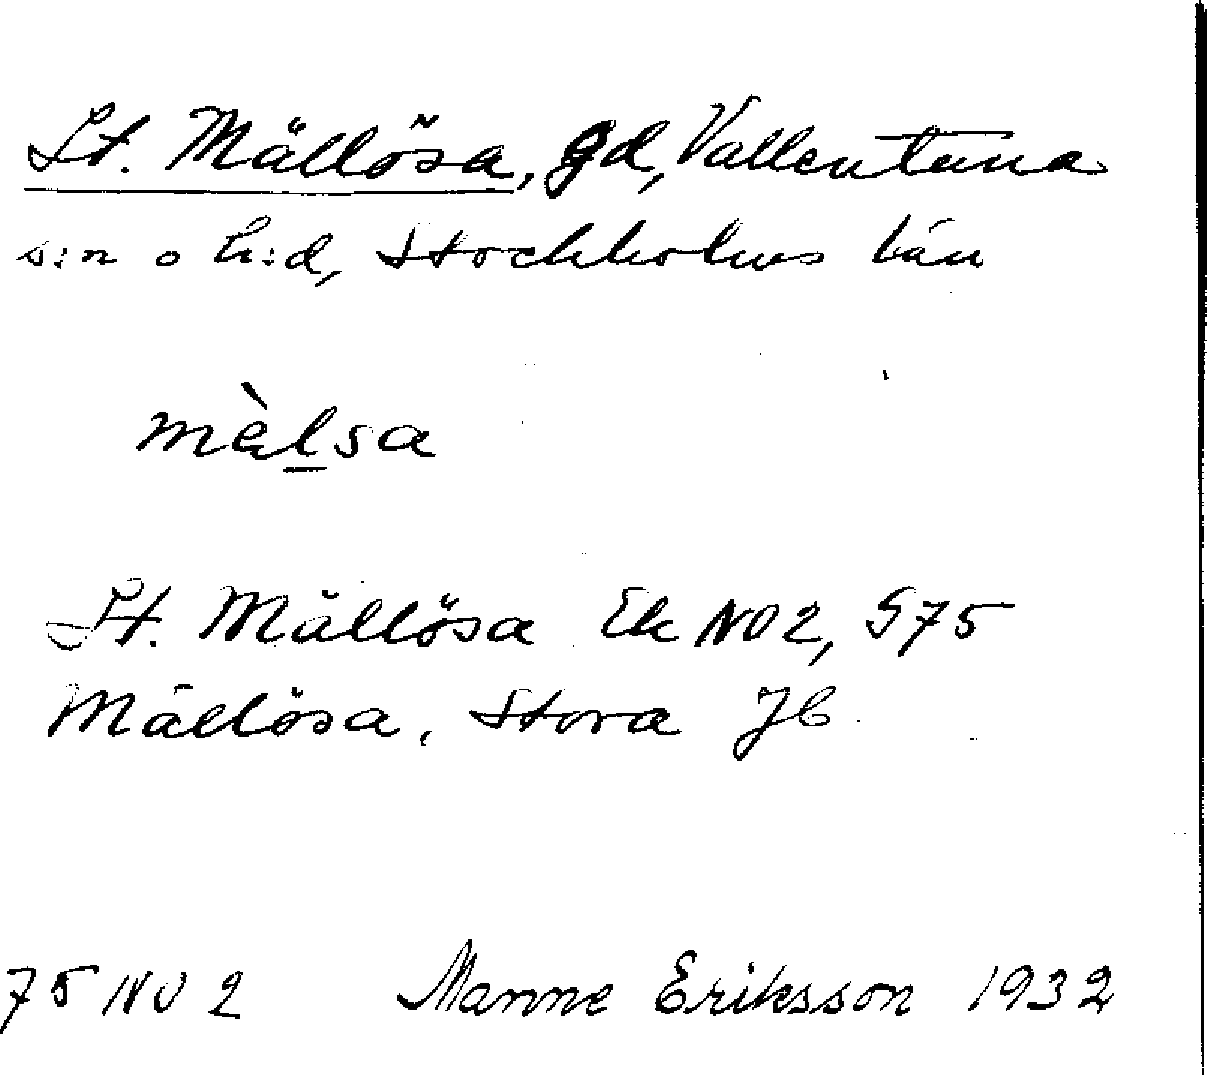 St. Mällösa, gd, Vallentuna
s:n o h:d, Stockholms län
mὲlsa
St. Mällösa Ek NO2, S75
Mällösa, Stora Jb
75 NO 2 Manne Eriksson 1932